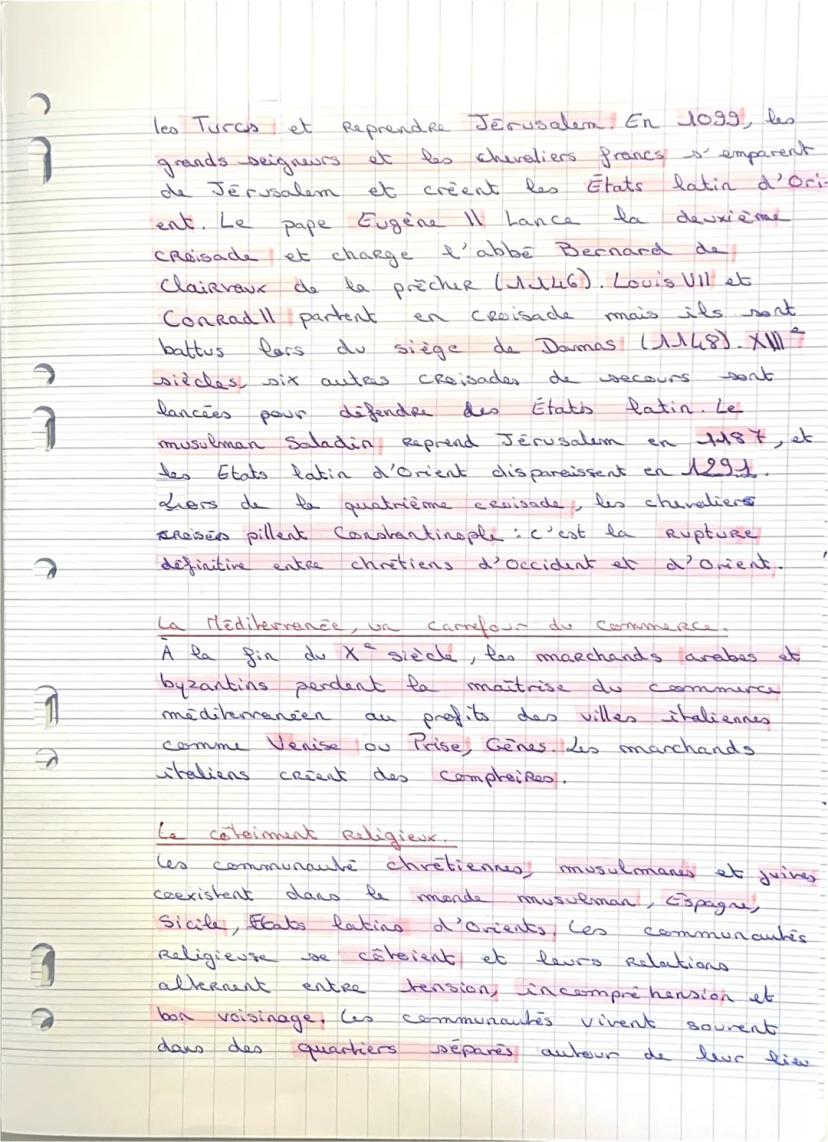 les Turcs et Reprendre Jérusalem. En 1099, les
grands seigneurs et les chevaliers francs s'emparent
de Jérusalem et créent les États latin d'Ori-
ent. Le pape Eugène II Lance la deuxième
CRoisade et charge l'abbé Bernard de
ClaiRvaux de la prêcher (1146). Louis VII et
Conrad II partent en croisade mais ils sont
battus lors du siège de Damas (1148). XIIIe
siècles, six autres croisades de secours sont
lancées pour défendre des États latin. Le
musulman Saladin, reprend Jérusalem en 1187, et
les Etats latin d'Orient disparaissent en 1291.
Lors de la quatrième croisade, les chevaliers
croisés pillent Constantinople : c'est la Rupture
définitive entre chrétiens d'Occident et d'Orient.
La Méditerranée, un carrefour du commerce.
À la fin du Xe siècle, les marchands arabes et
byzantins perdent la maîtrise du commerce
méditerranéen au profits des villes italiennes
comme Venise ou Prise, Gênes. Les marchands
italiens créent des comptoires.
Le côtoiment Religieux.
Les communauté chrétiennes, musulmanes et juives
coexistent dans le monde musulman, Espagne,
Sicile, Etats latins d'Orients. Les communautés
Religieuse se côtoient et leurs relations
alternent entre tension, incompréhension et
bon voisinage. Les communautés vivent souvent
dans des quartiers séparés autour de leur lieu